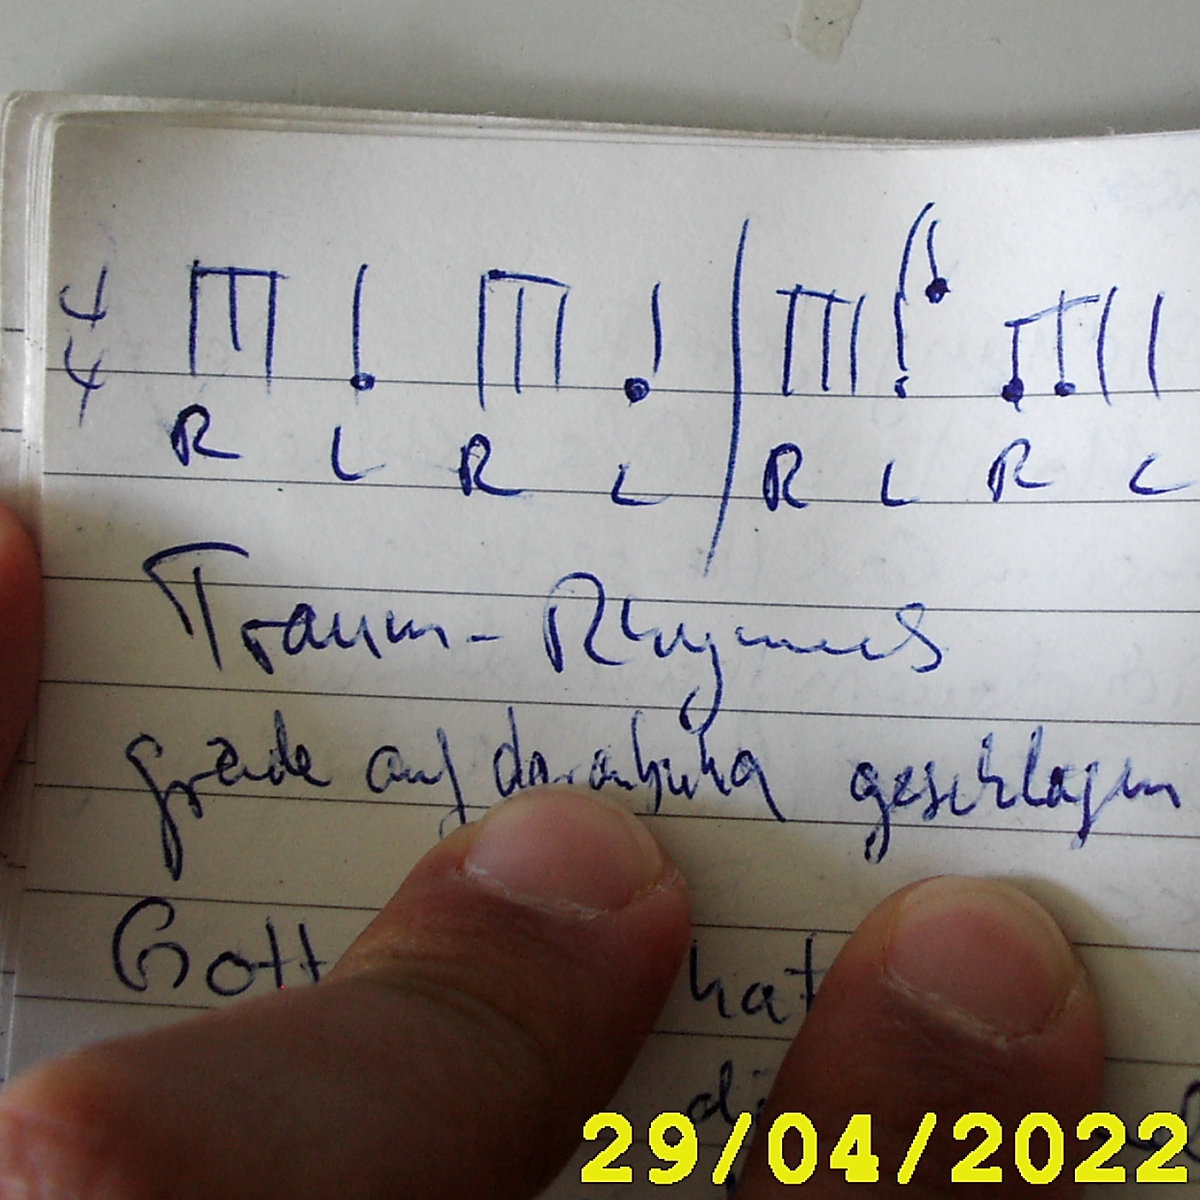 4
4
R L R L R L R L
Traum-Rhymus
grade auf darabuka geschlagen
Gott hat
di
29/04/2022